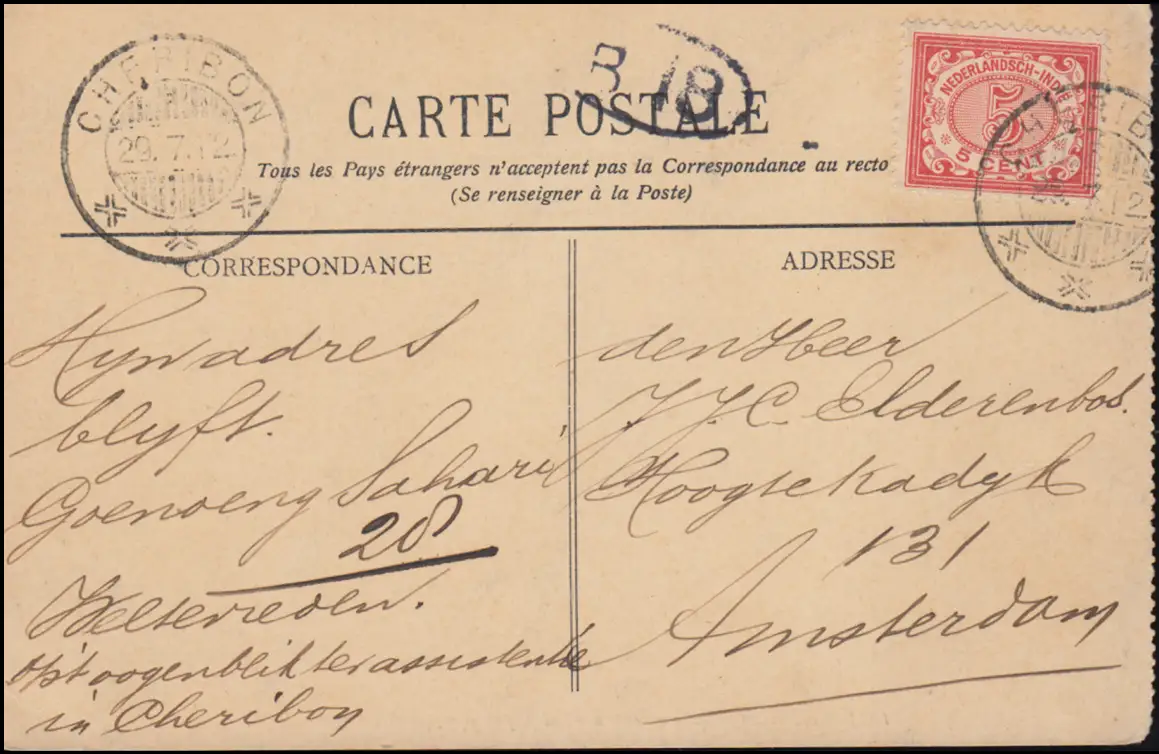 CHERIBON
29.7.12
B 18
CARTE POSTALE
Tous les Pays étrangers n'acceptent pas la Correspondance au recto
(Se renseigner à la Poste)
NEDERLANDSCH-INDIE
5
5 CENT 5
CORRESPONDANCE
Myn adres
blyft.
Goenoeng Sahari
28
Weltevreden.
op't oogenblik ter assistentie
in Cheribon
ADRESSE
den Heer
J.J.C. Elderenbos.
Hoogtekadyk
131
Amsterdam